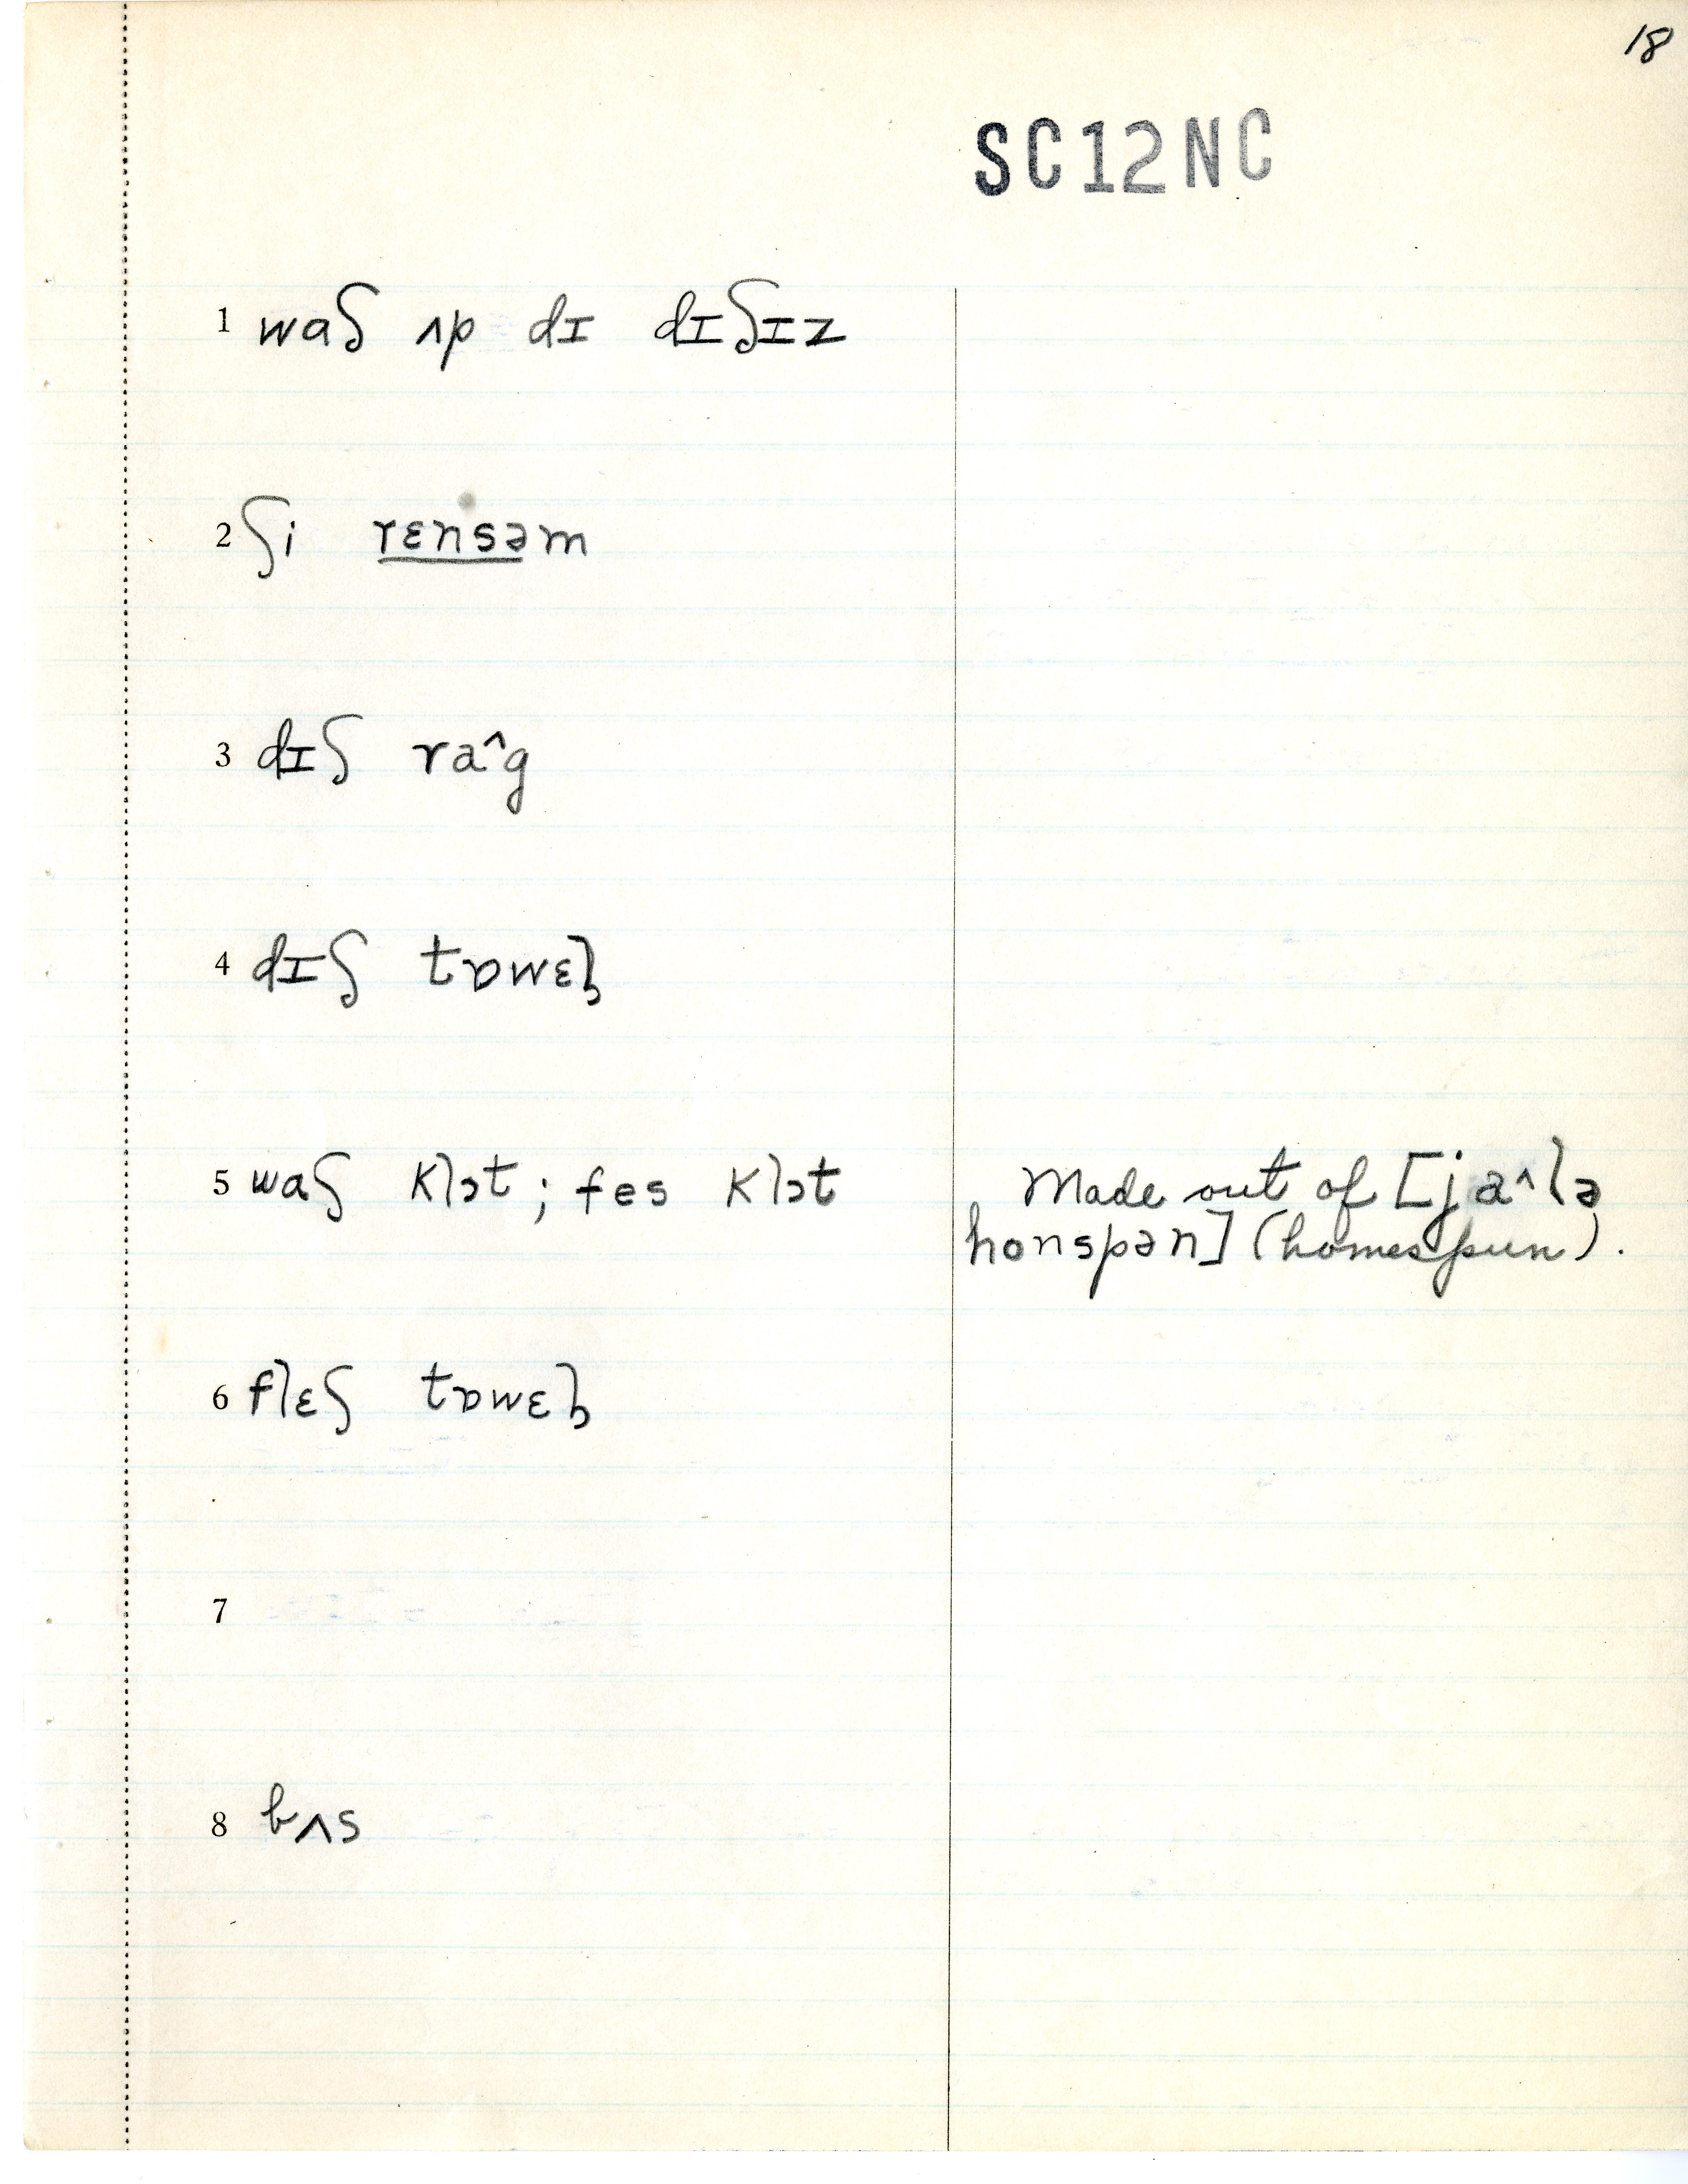 18
SC12NC
1 waʃ ʌp dɪ dɪʃɪz
2 ʃi rɛnsəm
3 dɪʃ ra^g
4 dɪʃ tɒwɛl̩
5 waʃ klɔt; fes klɔt
Made out of [ja^lə
honspən] (homespun).
6 flɛʃ tɒwɛl̩
7
8 bʌs